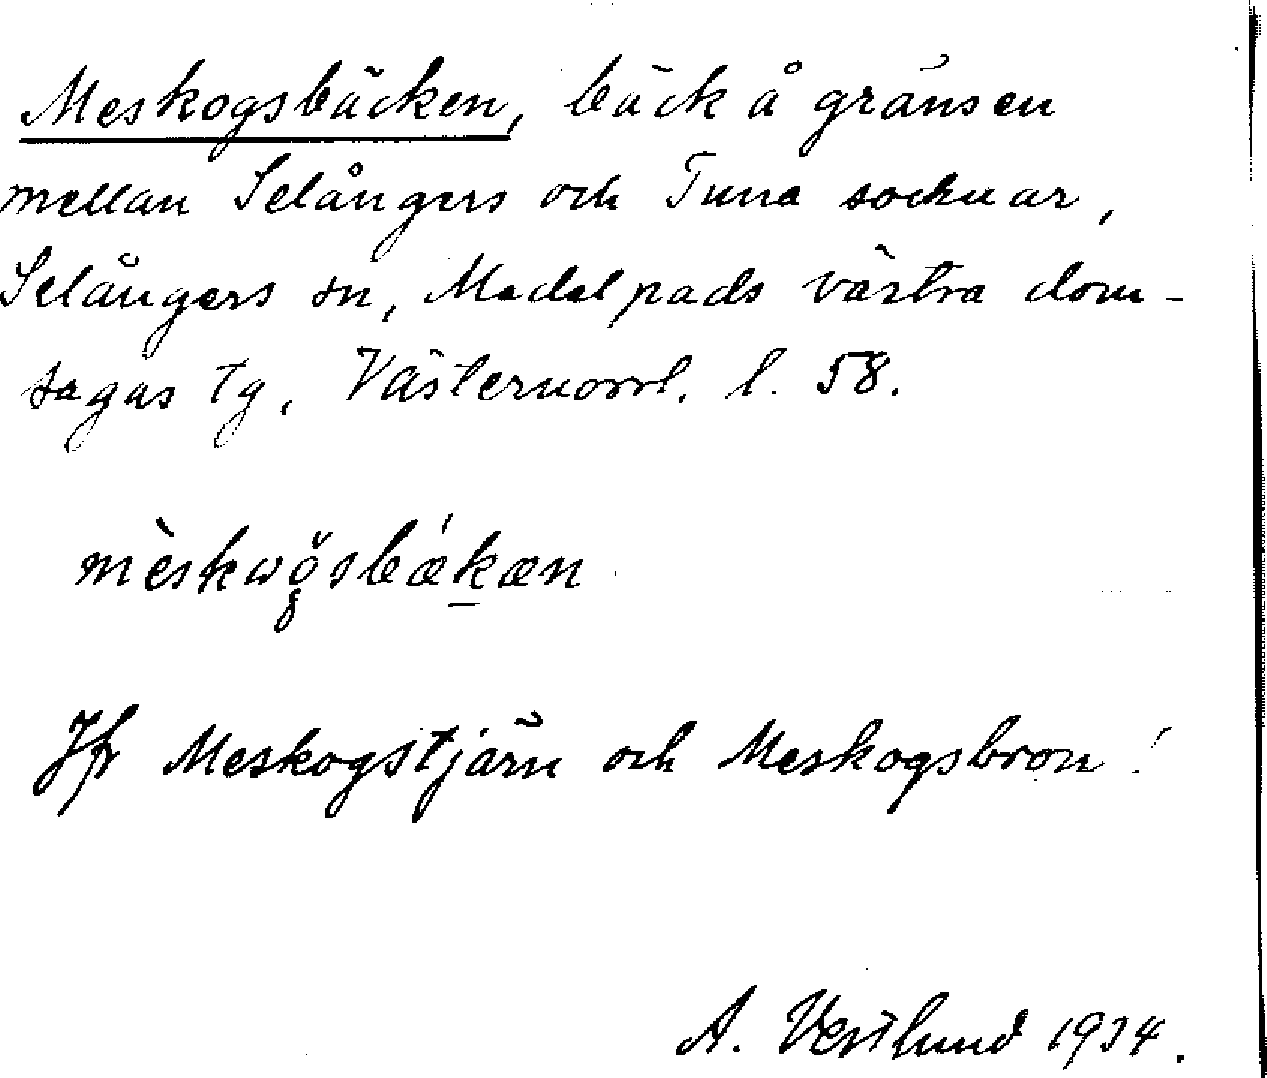 Meskogsbäcken, bäck å gränsen
mellan Selångers och Tuna socknar,
Selångers sn, Medelpads västra dom-
sagas tg, Västernorrl. l. 58.
Jfr Meskogstjärn och Meskogsbron!
A. Vestlund 1934.